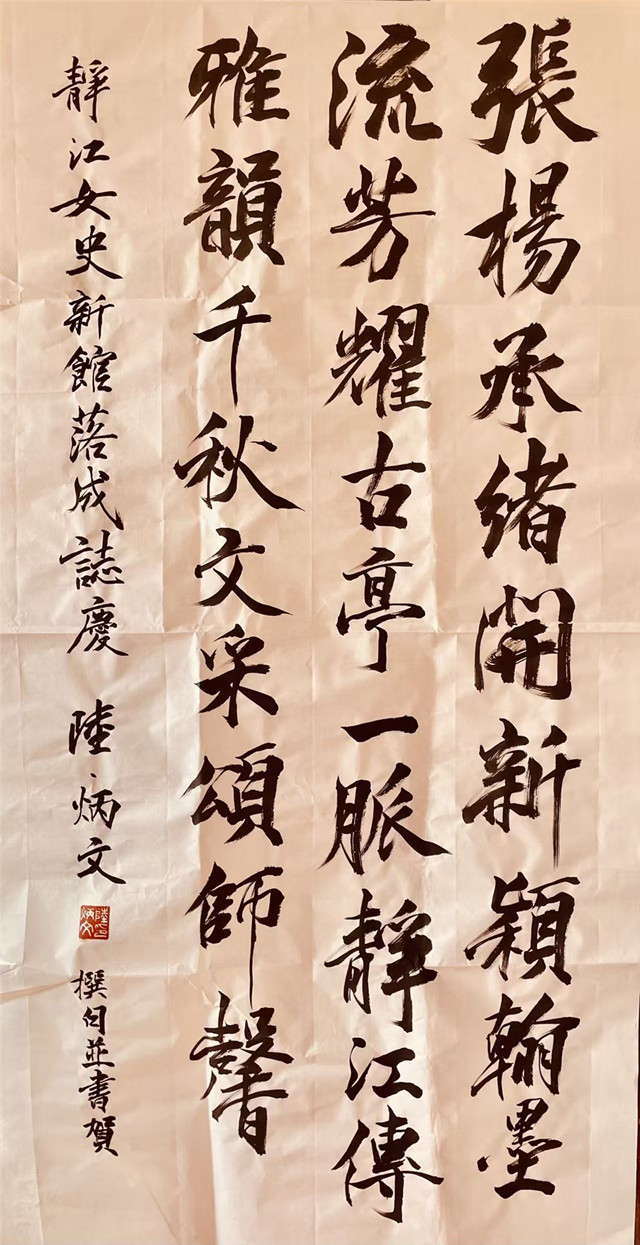 張楊承緒開新穎翰墨
流芳耀古亭一脈靜江傳
雅韻千秋文采頌師馨
靜江女史新館落成誌慶 陸炳文
陸炳文印
撰句並書賀